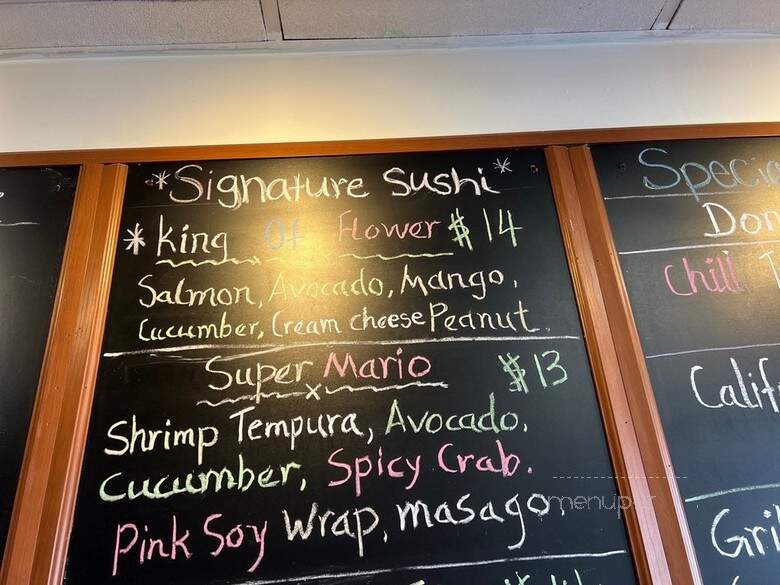 *Signature Sushi*
*King Of Flower $14
Salmon, Avocado, Mango,
Cucumber, Cream cheese Peanut.
Super Mario $13
Shrimp Tempura, Avocado,
Cucumber, Spicy Crab.
Pink Soy Wrap, masago.
Chili
menupix